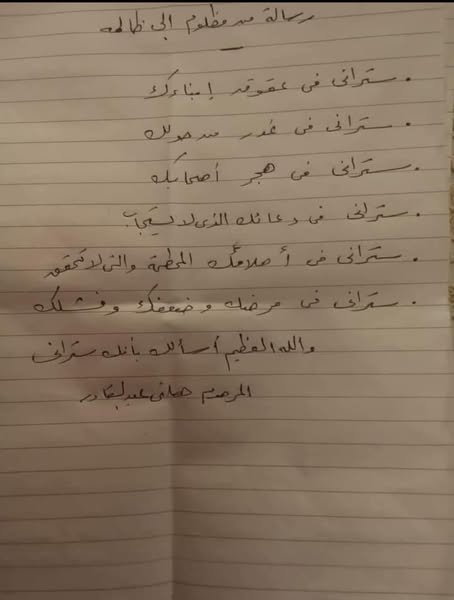 رسالة من مظلوم إلى ظالمه
• ستراني في عقوق إبناءك
• ستراني في غدر من حولك
• ستراني في هجر أصحابك
• ستراني في دعائك الذي لا يستجاب
• ستراني في أحلامك المحطمة والتي لا تتحقق
• ستراني في مرضك وضعفك وفشلك
والله العظيم أسألك بأنك ستراني
المرحوم عبدالقادر